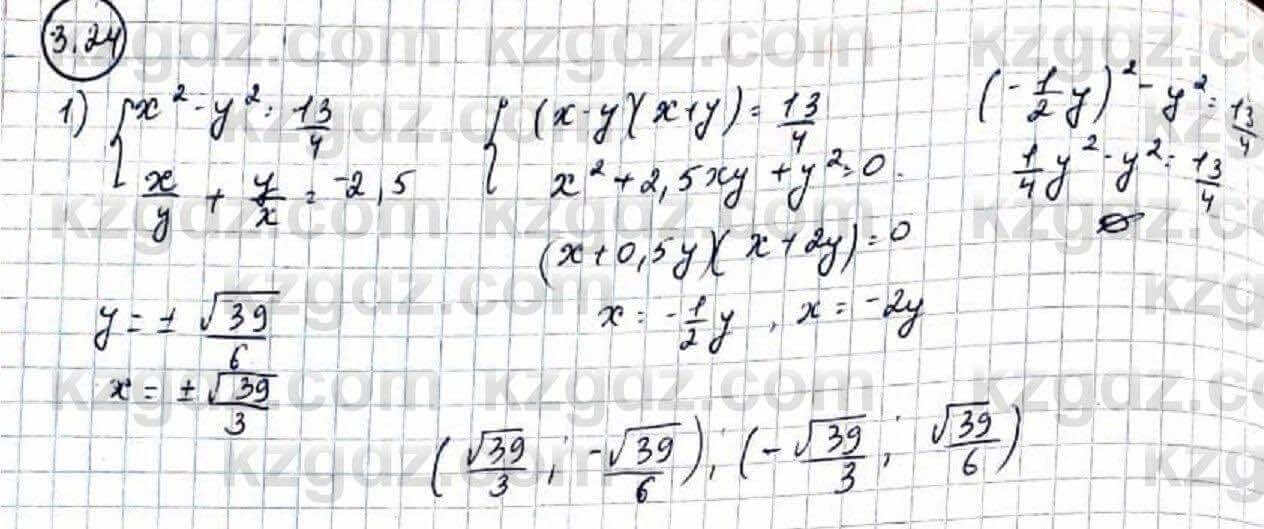 3.24
1) { x² - y² = 13/4
x/y + y/x = -2,5
{ (x-y)(x+y) = 13/4
x² + 2,5xy + y² = 0.
(x+0,5y)(x+2y) = 0
x = -1/2 y , x = -2y
(-1/2 y)² - y² = 13/4
1/4 y² - y² = 13/4
∅
y = ± √39/6
x = ± √39/3
(√39/3 ; -√39/6); (-√39/3 ; √39/6)
kzgdz.com kzgdz.com kzgdz.com
kzgdz.com kzgdz.com kzgdz.com
kzgdz.com kzgdz.com kzgdz.com
kzgdz.com kzgdz.com kz
kzgdz.com kzgdz.com kzgdz.co
kzgdz.com kzgdz.com kz